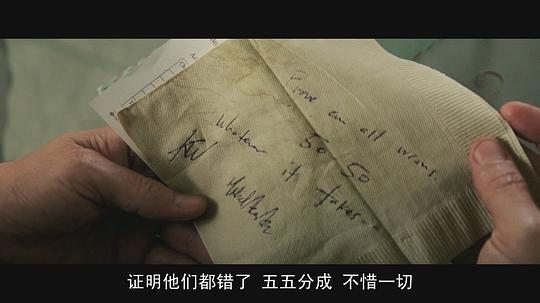 Prove em all wrong.
50 50
Whatever it takes...
证明他们都错了 五五分成 不惜一切